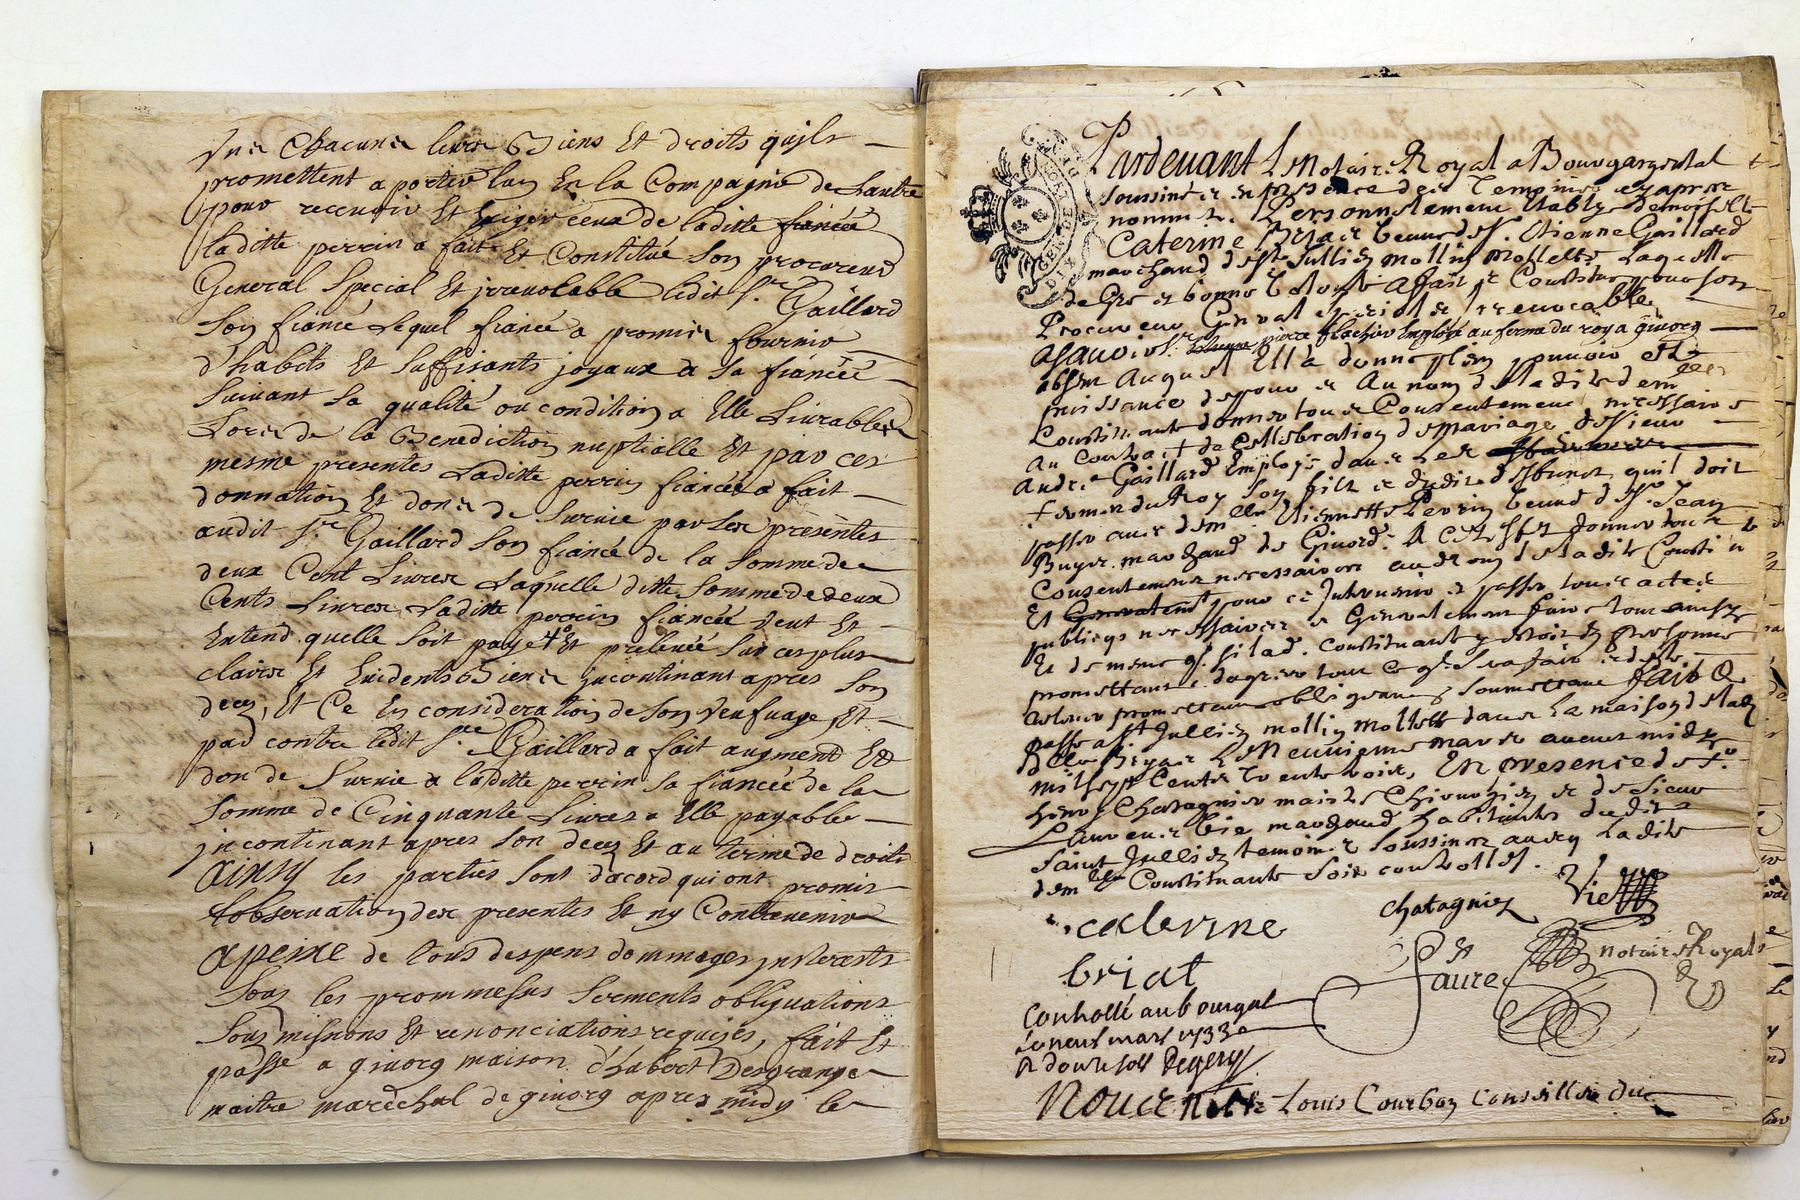 Vns Chacuns leurs Biens Et droits quils
promettent a porter lun En la Compagnie de Lautre
pour recevoir Et Exiger ceux de laditte fiancée
laditte perrin a fait Et Constitué son procureur
General Special Et jrrevolable ledit Sr. Gaillard
son fiancé Lequel fiancé a promis fournir
d'habits Et suffisants joyaux a Sa fiancée
suivant sa qualité ou condition a Elle Livrables
Lors de la Benediction nuptialle Et par ces
mesme presentes Laditte perrin fiancée a fait
donnation Et don de Survie par Les presentes
audit Sr Gaillard Son fiancé de la Somme de
deux Cent Livres Laquelle ditte Somme de deux
Cents Livres Laditte perrin fiancée veut Et
Entend quelle soit payé Et prelevée Sur ces plus
claires Et Evidents Biens jncontinant apres Son
deces, Et Ce En consideration de Son veufvage, Et
par contre ledit Sr Gaillard a fait augment Et
don de Survie a laditte perrin sa fiancée de la
Somme de Cinquante Livres a Elle payable
jncontinant apres son deces Et au terme de droits
Ainsy les parties sont dacord qui ont promis
Lobservation des presentes Et ny Contrevenir
Apeine de tous despens dommages jnterests
Sous les prommesses serments obliguations
Sousmissions Et renonciations requises, fait Et
passé a givors maison d'habert Desgranges
maitre maréchal de givors apres midy le
DIX DEN
GEN DE
Pardevant Le Notaire Royal a Bourgargental
soussiné et En presence des Tempins cy apres
nommés. Personnellement Establye demoiselle
Caterine Briat veuve de Sr. Etienne Gaillard
marchand de St Jullien mollin mollette Laquelle
de Gré et bonne volonté a fait et Constitué pour son
Procureur General special et jrrevocable
asavoir Sr. pierre flachier Employé au ferme du roy a givors
absent Auquel Ella donne plein pouvoir et
puissance de pour et Au nom de ladite demlle
Constituante donner tous Consentement nécessaire
Au Contract de Cellebration de mariage de Sieur
André Gaillard Employé dans Les
fermes du Roy son fils et dudit deffunct quil doit
passer avec demlle Etiennette Perrin veuve de Sr. Jean
Buyer marchand de Givord. A Cet Effet donner tout
Consentement nécessaire au nom de ladite Constite
Et pour ce Intervenir et passer tous actes
publiqs necessaires et Generalement faire tout ainsy
Et de meme qe. si lad. Constituante y estoit En personne
promettant dagreer tout ce qe. sera fait
promettant obligeant Soumettant fait &
passé a St Jullien mollin mollette dans La maison de lad
Dlle Briat Le Neuvieme mars avant midy
mil sept Cents trente trois, En presence de Sr.
henry Chatagnier maitre Chirurgien et de Sieur
Laurent Vie marchand habitants dudit
Saint Jullien temoins soussinés avecq Ladite
demlle Constituante soit controllé.
Chatagnier Vie
caterine
briat
Faure notaire Royal
Controllé aubourgal
le neuf mars 1733
R douze sols
Nous Mre Louis Courbon Conseiller du